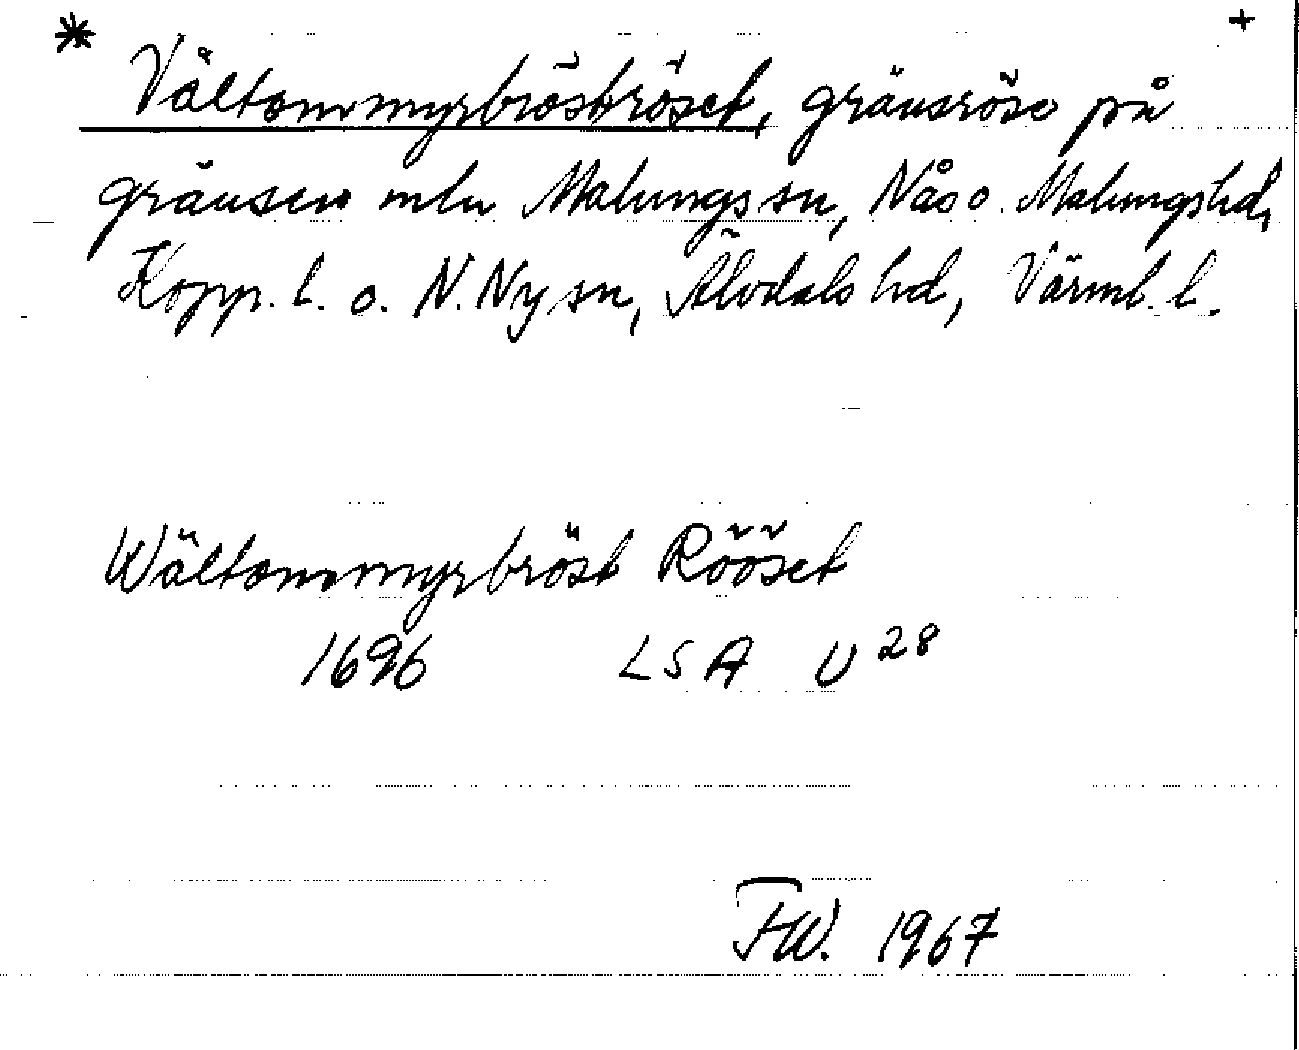 * Vältommyrbröströset, gränsröse på +
gränsen mln Malungs sn, Nås o. Malungs hd,
Kopp. l. o. N. Ny sn, Älvdals hd, Värml. l.
Wältommyrbröst Rööset
1696 LSA U 28
FW. 1967